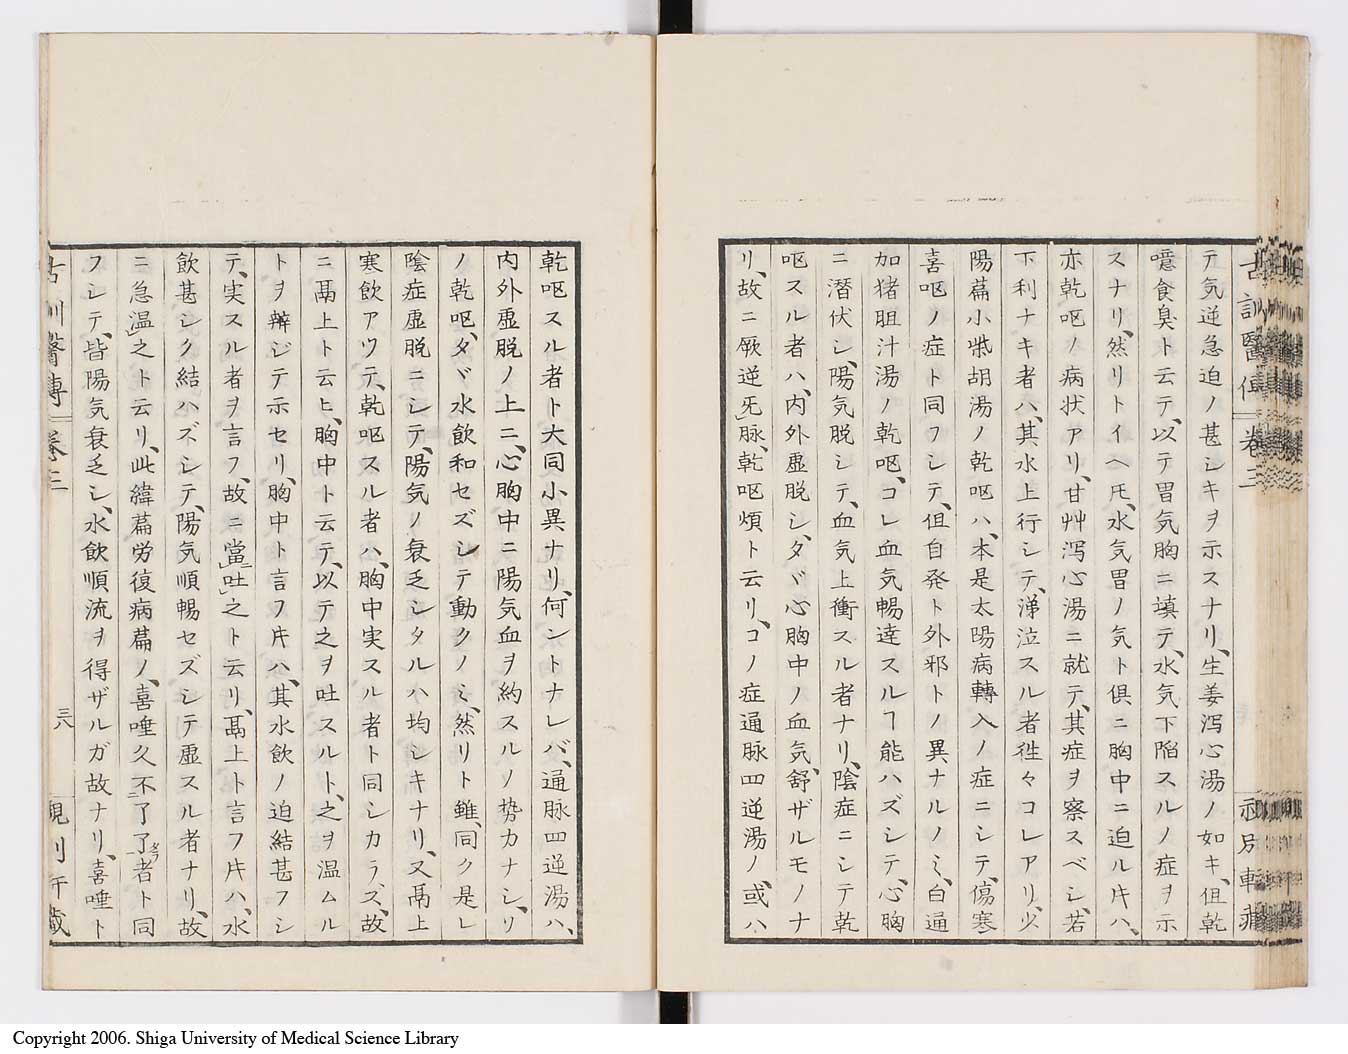 テ、気逆急迫ノ甚シキヲ示スナリ、生姜瀉心湯ノ如キ、但乾
噫食臭ト云テ、以テ胃気胸ニ填テ、水気下陥スルノ症ヲ示
スナリ、然リトイヘ𪜈、水気胃ノ気ト倶ニ胸中ニ迫ル片ハ、
亦乾呕ノ病状アリ、甘艸瀉心湯ニ就テ、其症ヲ察スベシ、若
下利ナキ者ハ、其水上行シテ、涕泣スル者徃々コレアリ、少
陽篇小柴胡湯ノ乾呕ハ、本是太陽病轉入ノ症ニシテ、傷寒
喜呕ノ症ト同フシテ、但自発ト外邪トノ異ナルノミ、白通
加猪胆汁湯ノ乾呕、コレ血気暢達スルヿ能ハズシテ、心胸
ニ潜伏シ、陽気脱シテ、血気上衝スル者ナリ、陰症ニシテ乾
呕スル者ハ、内外虚脱シ、タヾ心胸中ノ血気、舒ザルモノナ
リ、故ニ厥逆旡脉、乾呕煩ト云リ、コノ症通脉四逆湯ノ、或ハ
古訓醫傳 卷三
乾呕スル者ト大同小異ナリ、何ントナレバ、通脉四逆湯ハ、
内外虚脱ノ上ニ、心胸中ニ陽気血ヲ約スルノ勢力ナシ、リ
ノ乾呕、タヾ水飲和セズシテ動クノミ、然リト雖、同ク是レ
陰症虚脱ニシテ、陽気ノ衰乏シタルハ均シキナリ、又鬲上
寒飲アツテ、乾呕スル者ハ、胸中実スル者ト同シカラズ、故
ニ鬲上ト云ヒ、胸中ト云テ、以テ之ヲ吐スルト、之ヲ温ムル
トヲ辨ジテ示セリ、胸中ト言フ片ハ、其水飲ノ迫結甚フシ
テ、実スル者ヲ言フ、故ニ當吐之ト云リ、鬲上ト言フ片ハ、水
飲甚シク結ハズシテ、陽気順暢セズシテ虚スル者ナリ、故
ニ急温之ト云リ、此緯篇労復病篇ノ、喜唾久不了了者ト同
フシテ、皆陽気衰乏シ、水飲順流ヲ得ザルガ故ナリ、喜唾ト
古訓醫傳 卷三
三八
Copyright 2006. Shiga University of Medical Science Library